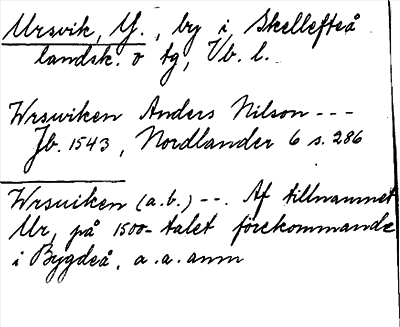 Ursvik, Y. , by i Skellefteå
landsk. o tg, Vb. l.
Wrswiken Anders Nilson ---
Jb. 1543, Nordlander 6 s. 286
Wrsuiken (a.b.) --. Af tillnamnet
Ur, på 1500-talet förekommande
i Bygdeå. a.a. anm